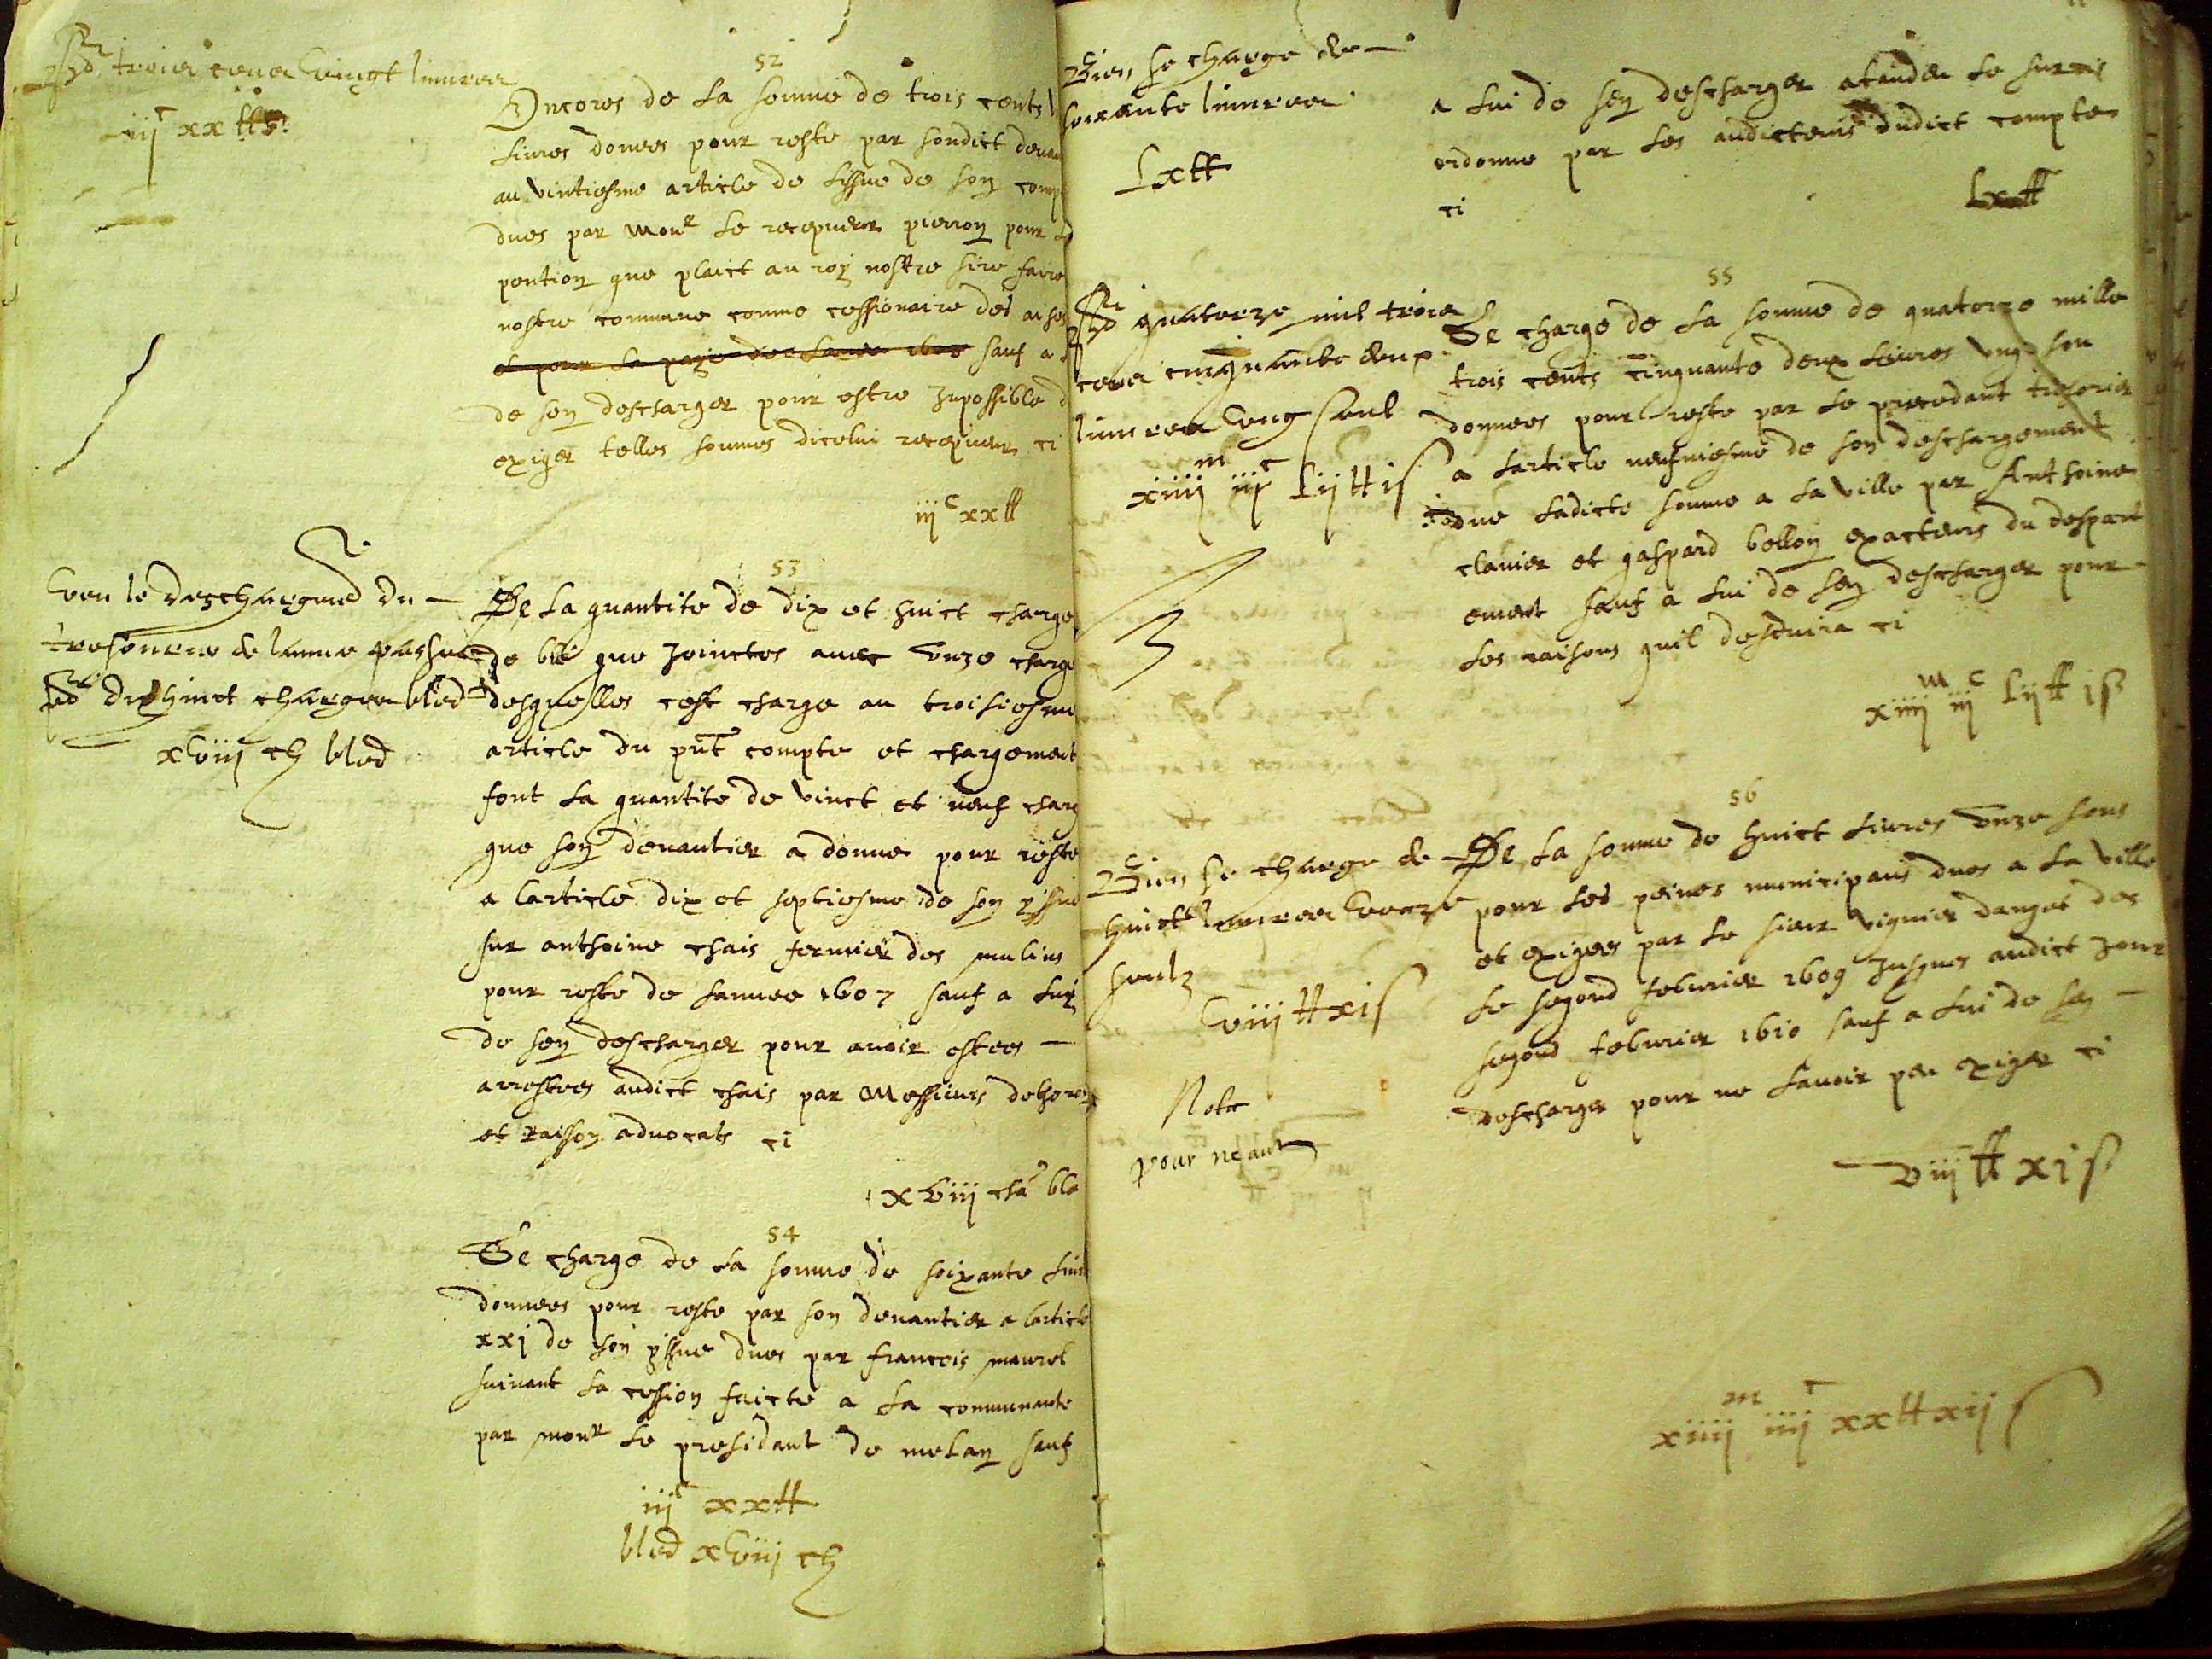 trois cens vingt livres
iijᶜ xx ₶
52
Encores de la somme de trois cents
livres donees pour reste par sondict devan
au vintiesme article de lissue de son comp
dues par monr le recepveur pierron pour
pention que plaict au roy nostre sire faire
nostre commune comme cessionaire des
et pour la paye de lannee 1608 sauf a
de sen descharger pour estre Inpossible d
exiger telles sommes dicelui recepveur ci
iijᶜ xx ₶
Veu le deschargemt du
tresorier de lannee passee
dixhuict charges bled
xviij ch bled
53
De la quantite de dix et huict charge
de ble que Joinctes avec unze charge
desquelles cest charge au troisiesme
article du pnt compte et chargement
font la quantite de vinct et neuf charg
que son devantier a donne pour reste
a larticle dix et septiesme de son yssue
sur anthoine chais fermier des mulins
pour reste de lannee 1607 sauf a luy
de sen descharger pour avoir estees
arrestees audict chais par Messieurs
et Raisson advocats ci
xviij cha bla
54
Se charge de la somme de soixante livr
donnees pour reste par son devantier a larticle
xxj de son yssue dues par francois maurel
suivant la cession faicte a la communaute
par monr le presidant de melan sauf
iijᶜ xx ₶
bled xviij ch
Bien se charge de
soixante livres
Lx ₶
a lui de sen descharger atandeu le
ordonne par les audicteurs dudict compte
ci
Lx ₶
quatorze mil trois
cens cinquante deux
livres ung soul
xiiijᵐ iijᶜ Lij ₶ i s
55
Se charge de la somme de quatorze mille
trois cents cinquante deux livres ung sou
donnees pour reste par le precedant tresorier
a larticle neufviesme de son deschargement
due ladicte somme a la ville par Anthoine
clavier et gaspard bellon exacteurs du despart
ement sauf a lui de sen descharger pour
les raisons quil desduira ci
xiiijᵐ iijᶜ Lij ₶ i s
Bien se charge de
huict livres unze
soulz
viij ₶ xi s
Nota
pour neant
56
De la somme de huict livres unze sous
pour les peines municipaus dues a la ville
et exigees par le sieur viguier dangos des
le segond febvrier 1609 Jusques audict Jour
segond febvrier 1610 sauf a lui de sen
descharger pour ne lavoir peu exiger ci
viij ₶ xi s
xiiijᵐ iiijᶜ xx ₶ xij s